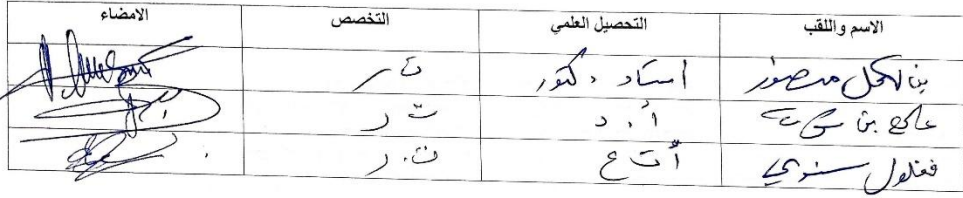 الاسم واللقب التحصيل العلمي التخصص الامضاء
بن لكحل منصور استاد دكتور ت ر
بن أ. د ت ر
فغلول سنوسي أ ت ع ت. ر